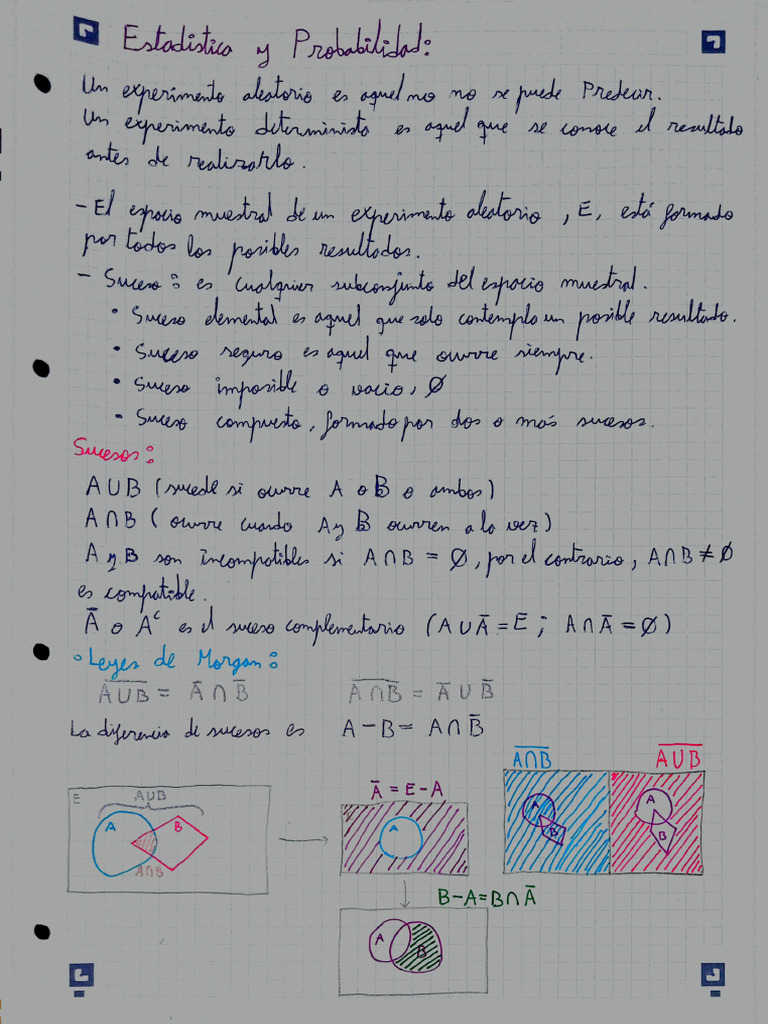 Estadística y Probabilidad:
Un experimento aleatorio es aquel no no se puede Predecir.
Un experimento determinista es aquel que se conoce el resultado
antes de realizarlo.
- El espacio muestral de un experimento aleatorio, E, está formado
por todos los posibles resultados.
- Suceso: es cualquier subconjunto del espacio muestral.
• Suceso elemental es aquel que solo contempla un posible resultado.
• Suceso seguro es aquel que ocurre siempre.
• Suceso imposible o vacio, Ø
• Suceso compuesto, formado por dos o más sucesos.
Sucesos:
A∪B (sucede si ocurre A o B o ambos)
A∩B (ocurre cuando A y B ocurren a la vez)
A y B son incompatibles si A∩B = Ø, por el contrario, A∩B ≠ Ø
es compatible.
Ā o Aᶜ es el suceso complementario (A∪Ā = E; A∩Ā = Ø)
• Leyes de Morgan:
A̅∪̅B̅ = Ā∩B̅ A̅∩̅B̅ = Ā∪B̅
La diferencia de sucesos es A-B = A∩B̅
A̅∩̅B̅ A̅∪̅B̅
E A∪B
A B
A∩B
Ā = E-A
A
A B
A B
B-A=B∩Ā
A B